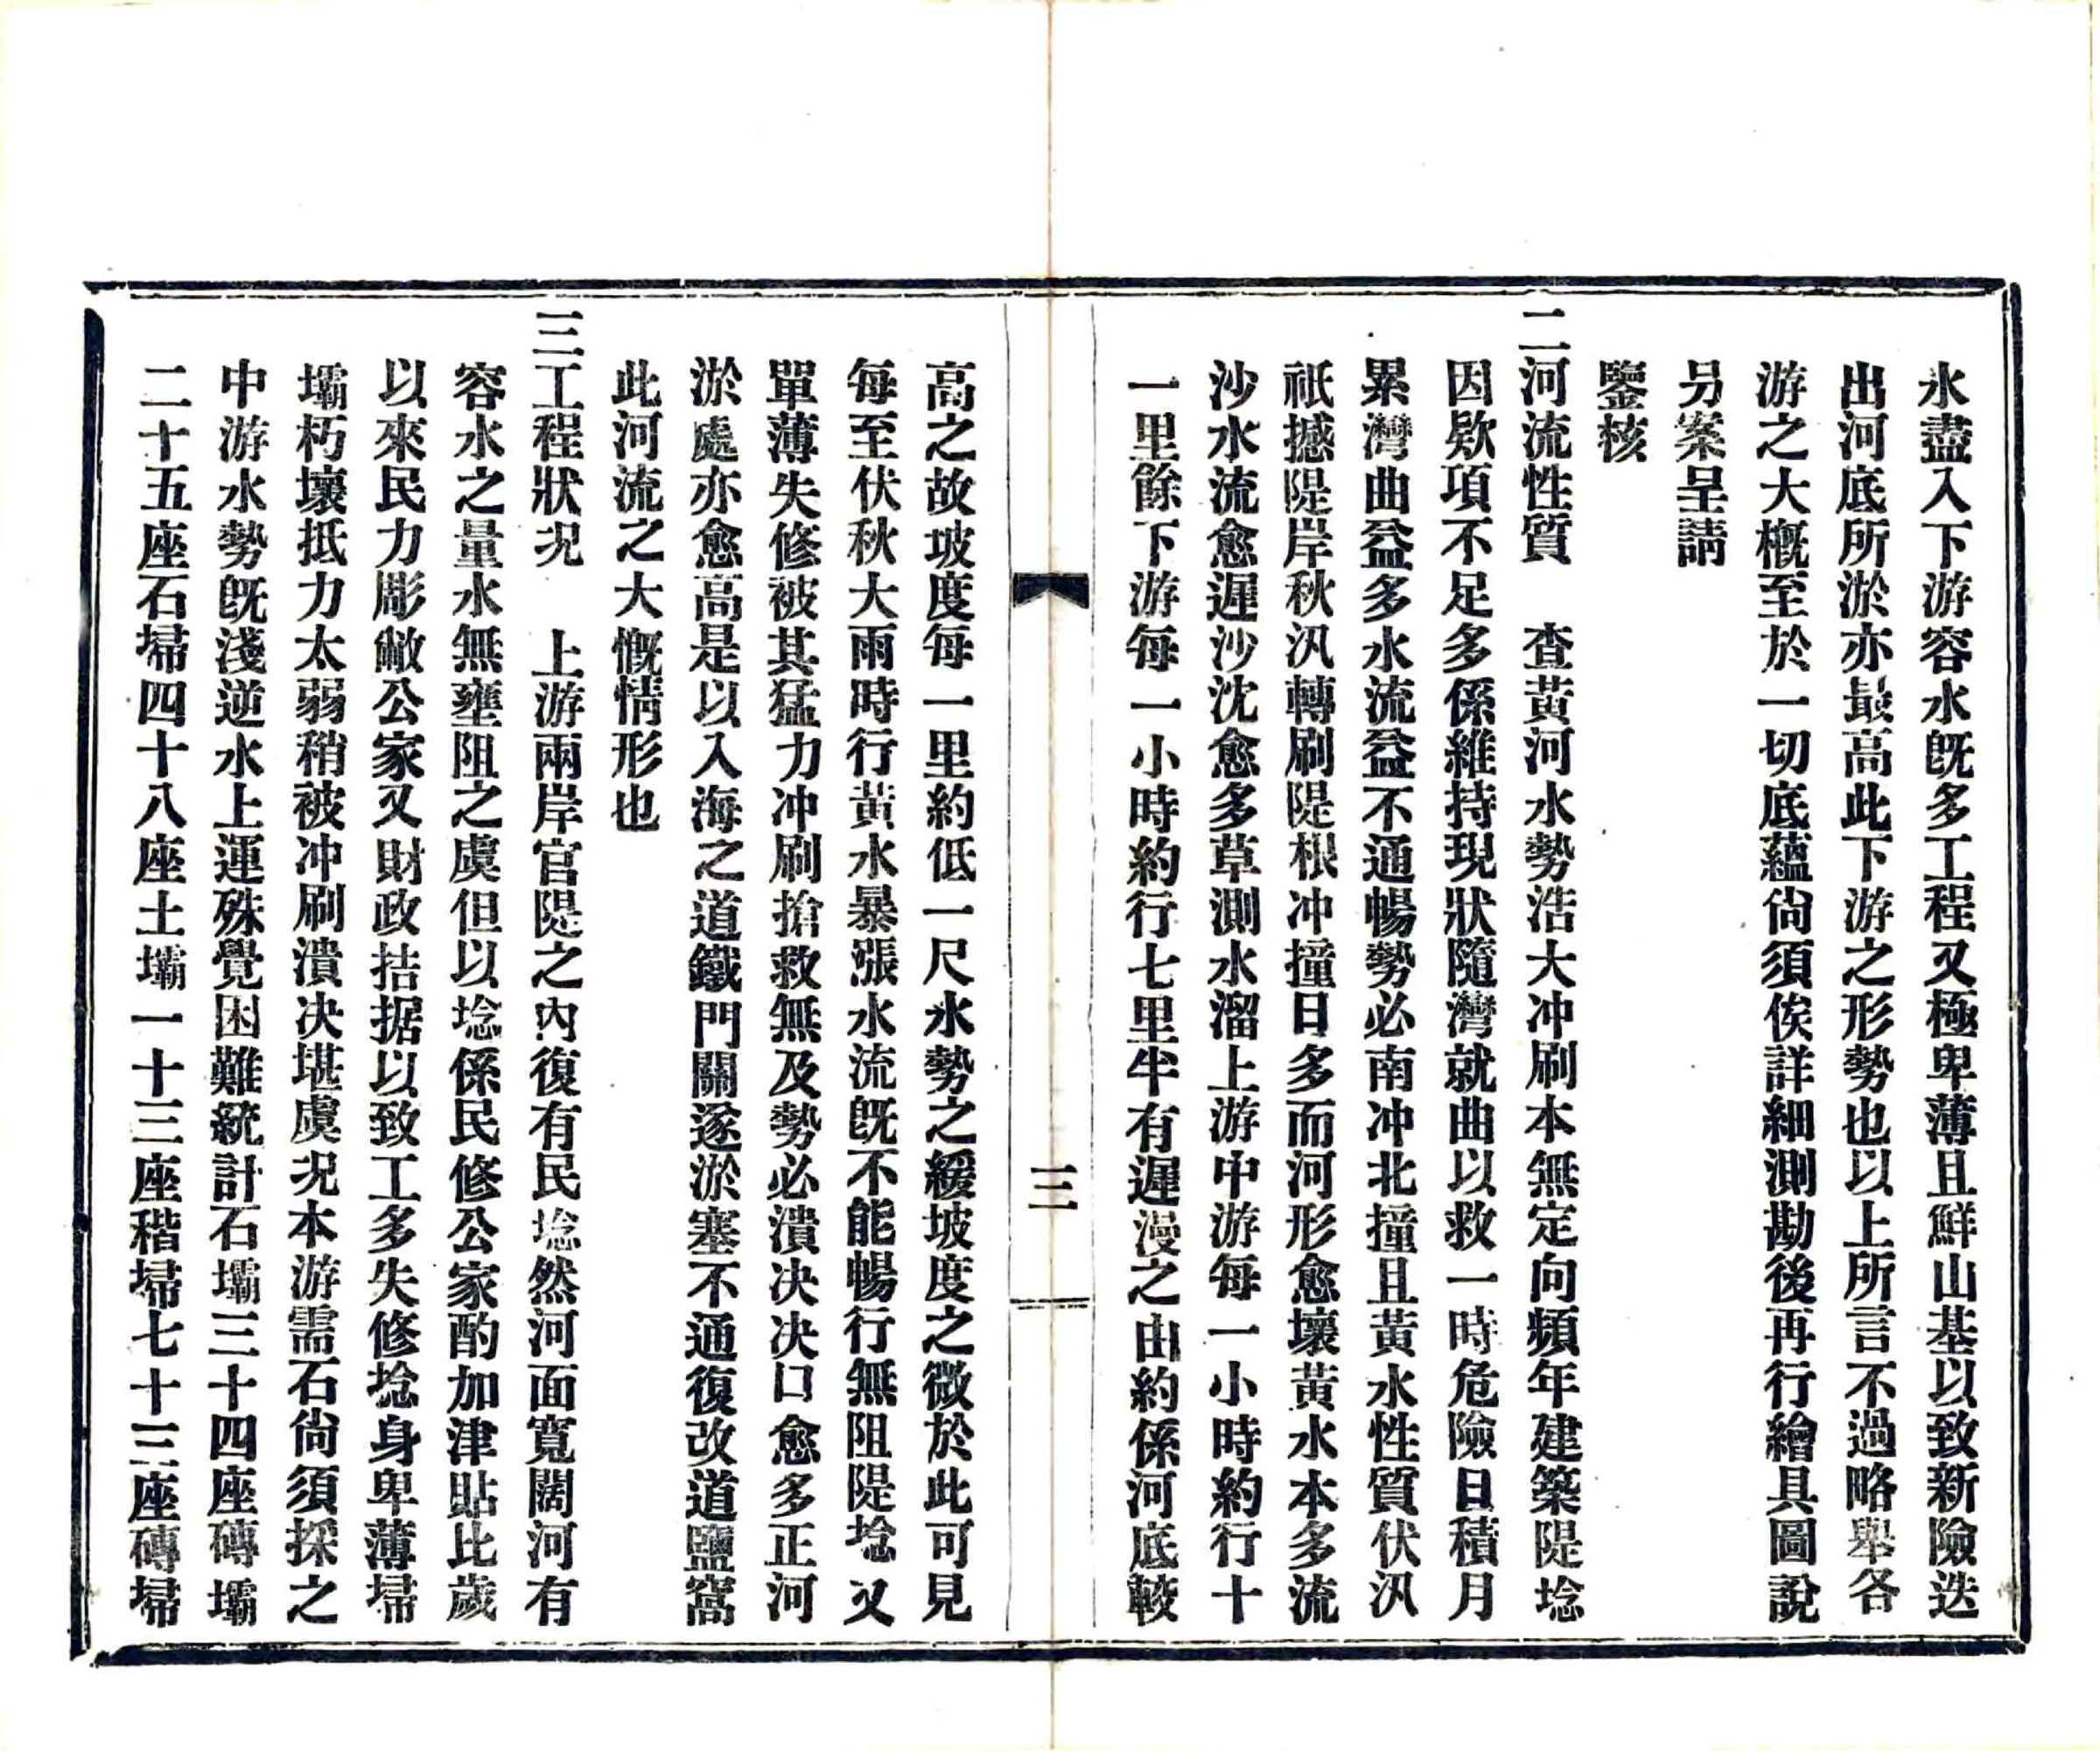 水盡入下游容水旣多工程又極卑薄且鮮山基以致新險迭
出河底所淤亦最高此下游之形勢也以上所言不過略舉各
游之大槪至於一切底蘊尙須俟詳細測勘後再行繪具圖說
另案呈請
鑒核
二河流性質　查黃河水勢浩大冲刷本無定向頻年建築隄埝
因欵項不足多係維持現狀隨灣就曲以救一時危險日積月
累灣曲益多水流益不通暢勢必南冲北撞且黃水性質伏汛
祇撼隄岸秋汛轉刷隄根冲撞日多而河形愈壞黃水本多流
沙水流愈遲沙沈愈多草測水溜上游中游每一小時約行十
一里餘下游每一小時約行七里半有遲漫之由約係河底較
三
高之故坡度每一里約低一尺水勢之緩坡度之微於此可見
每至伏秋大雨時行黃水暴漲水流旣不能暢行無阻隄埝又
單薄失修被其猛力冲刷搶救無及勢必潰决决口愈多正河
淤處亦愈高是以入海之道鐵門關遂淤塞不通復改道鹽窩
此河流之大慨情形也
三工程狀况　上游兩岸官隄之內復有民埝然河面寬闊河有
容水之量水無壅阻之虞但以埝係民修公家酌加津貼比歲
以來民力彫敝公家又財政拮据以致工多失修埝身卑薄埽
壩朽壞抵力太弱稍被冲刷潰决堪虞况本游需石尙須採之
中游水勢旣淺逆水上運殊覺困難統計石壩三十四座磚壩
二十五座石埽四十八座土壩一十三座稭埽七十三座磚埽